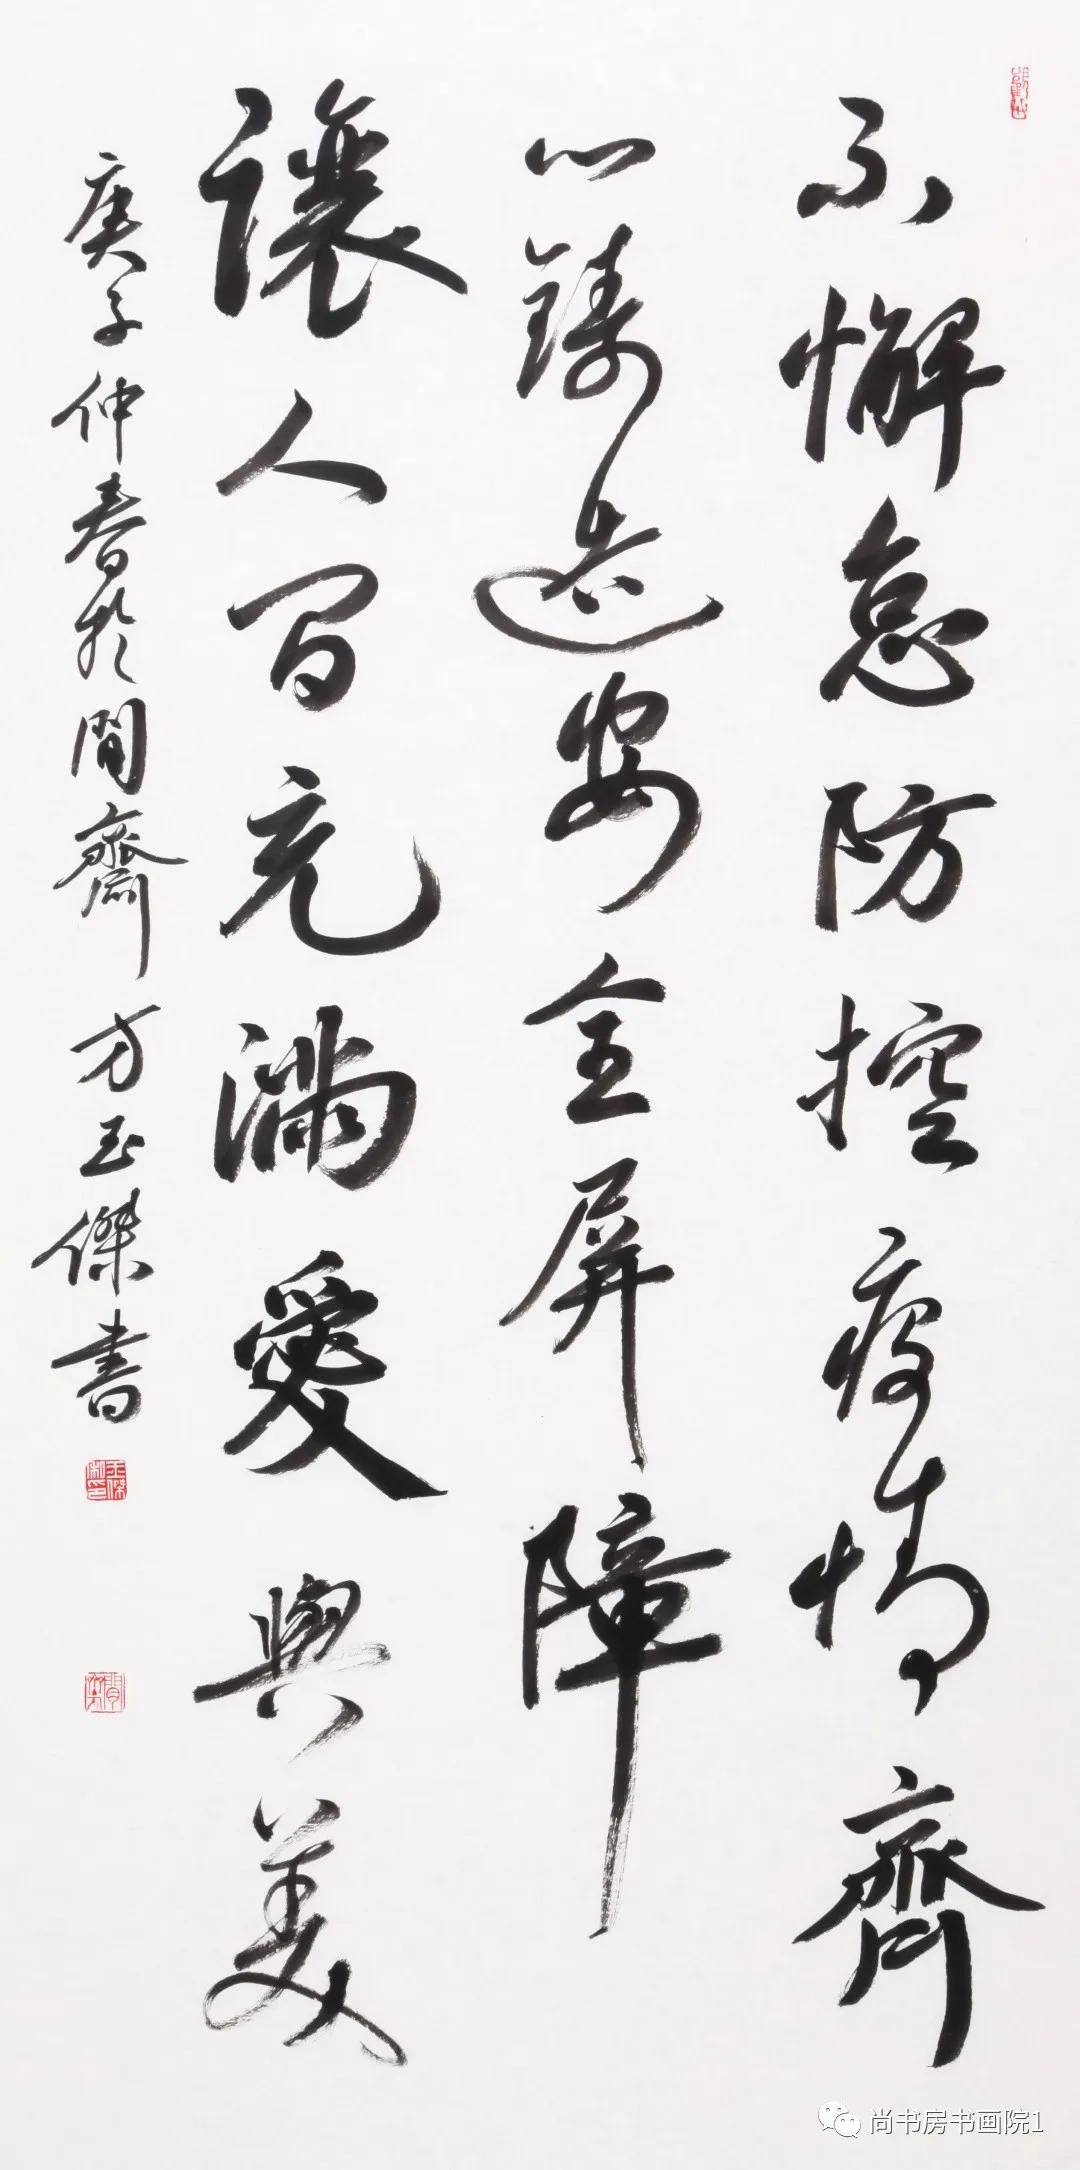 不懈怠防控疫情齊
心鑄造安全屏障
讓人间充滿愛與美
庚子仲春於閒齋方玉傑書
玉傑
尚书房书画院1